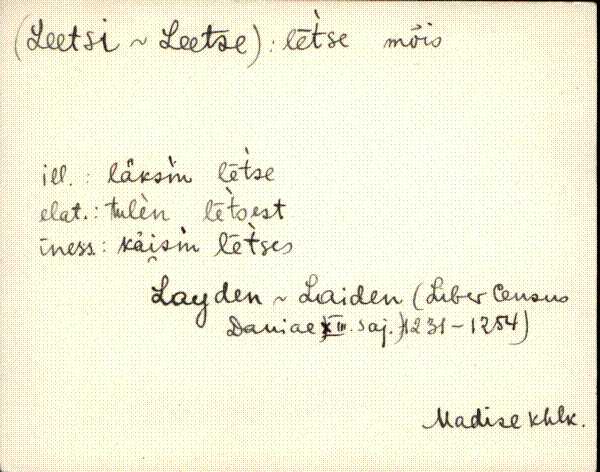 (Leetsi ~ Leetse) : lēt̀se mõis
ill. : läksìn lēt̀se
elat. : tulèn lēt̀sest
iness. : käisìn lēt̀ses
Layden ~ Laiden (Liber Census
Daniae XIII. saj. 1231-1254)
Madise khlk.